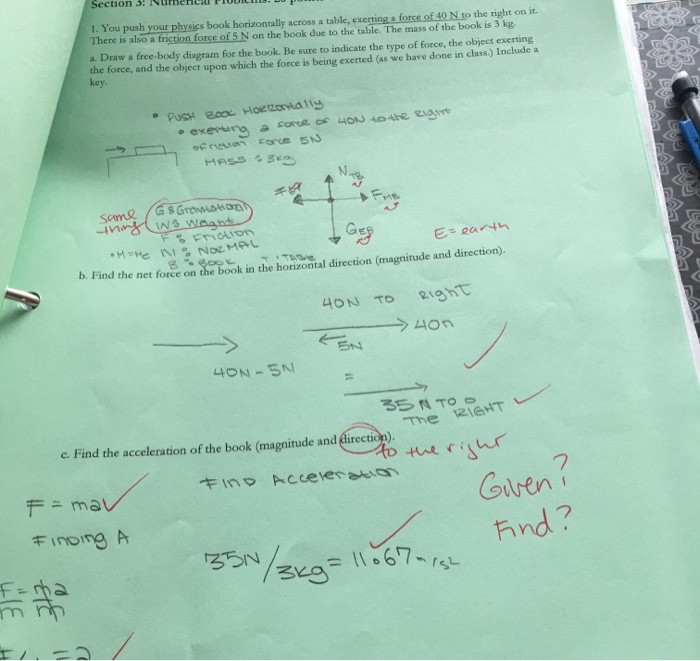 Section 3: Numerical
1. You push your physics book horizontally across a table, exerting a force of 40 N to the right on it.
There is also a friction force of 5 N on the book due to the table. The mass of the book is 3 kg.
a. Draw a free-body diagram for the book. Be sure to indicate the type of force, the object exerting
the force, and the object upon which the force is being exerted (as we have done in class.) Include a
key.
• PUSH BOOK HORIZONTALLY
• exerting a force of 40N to the Right
of friction Force 5N
MASS : 3kg
N TB
F MB
G EB
E = earth
same
thing
G: Gravitation
W: Weight
F: Friction
• M = Me N: NORMAL
B: BOOK T: TABLE
b. Find the net force on the book in the horizontal direction (magnitude and direction).
40N TO Right
40n
5N
40N - 5N
=
35N TO
The RIGHT
c. Find the acceleration of the book (magnitude and direction).
to the right
Find Acceleration
Given?
Find?
F = ma
Finding A
35N/3kg = 11.67m/s2
F = ma
m m
= a